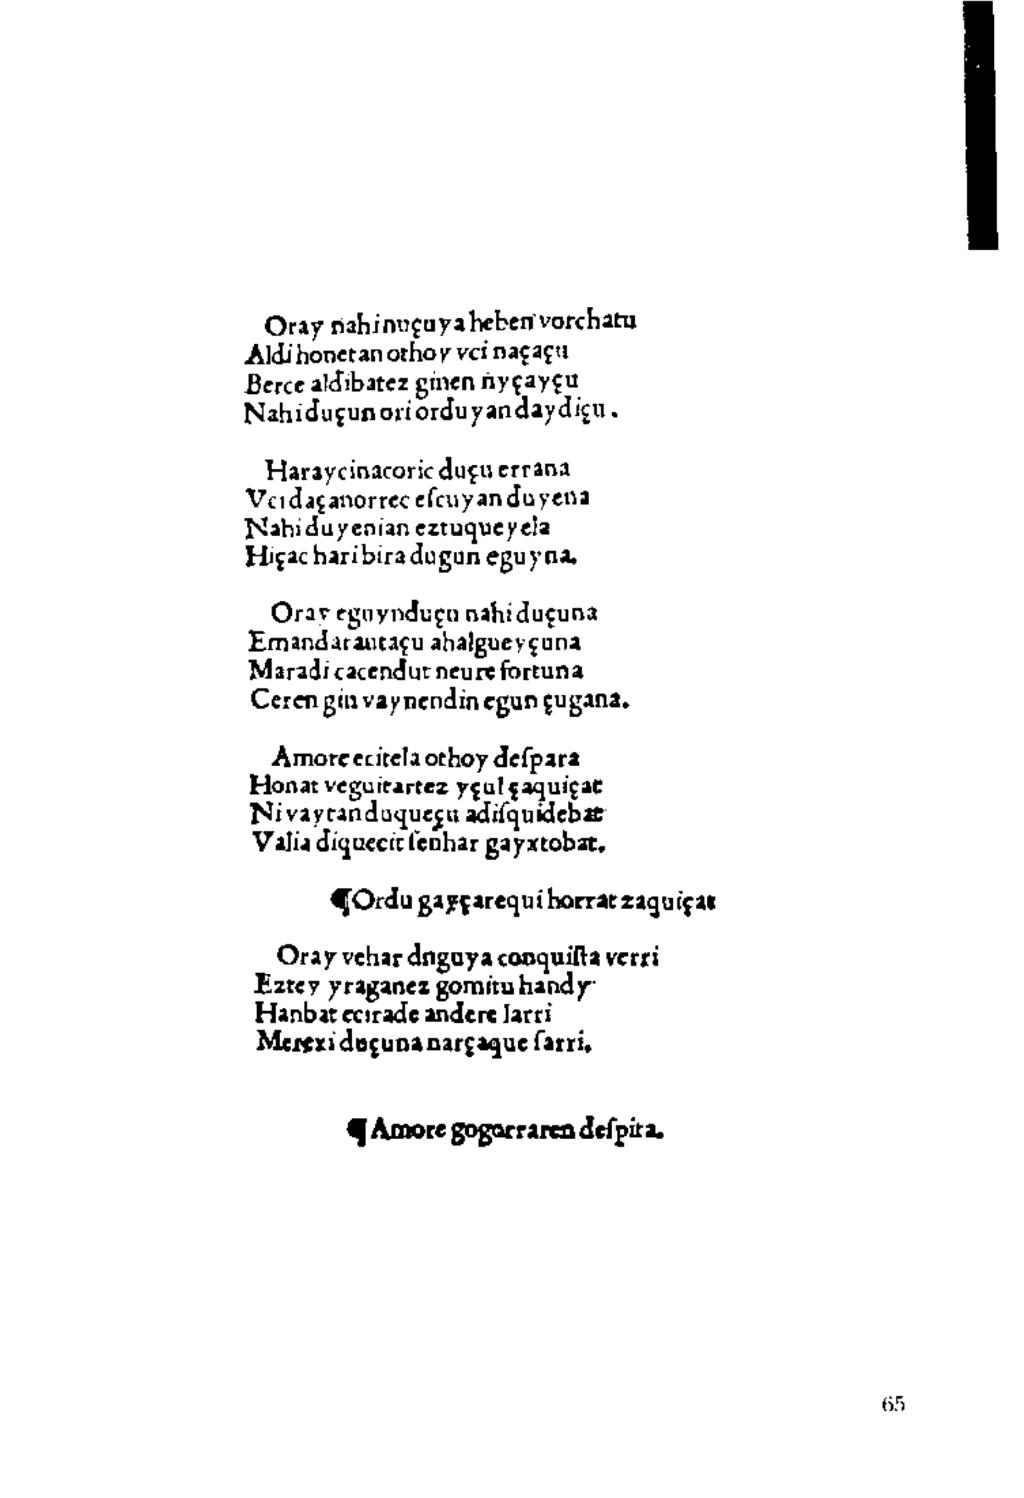 Oray nahinuçuya heben vorchatu
Aldi honetan othoy vci naçaçu
Berce aldibatez ginen nyçayçu
Nahiduçun ori orduyan daydiçu.
Haray cinacoric duçu errana
Vci daçanorrec eſcuyan duyena
Nahi duyenian eztuqueyela
Hiçac hari bira dugun eguyna.
Oray eguynduçu nahi duçuna
Emandarautaçu ahalgueyçuna
Maradicacendut neure fortuna
Ceren gin vaynendin egun çugana.
Amore ecitela othoy deſpara
Honat veguitartez yçul çaquiçat
Ni vaytanduqueçu adiſquidebat
Valia diquecit ſenhar gayxtobat.
¶Ordu gayçarequi horrat zaquiçat
Oray vehar duguya conquiſta verri
Eztey yraganez gomitu handy
Hanbat ecirade andere larri
Merexi duçuna narçaque ſarri.
¶Amore gogorraren deſpita.
65